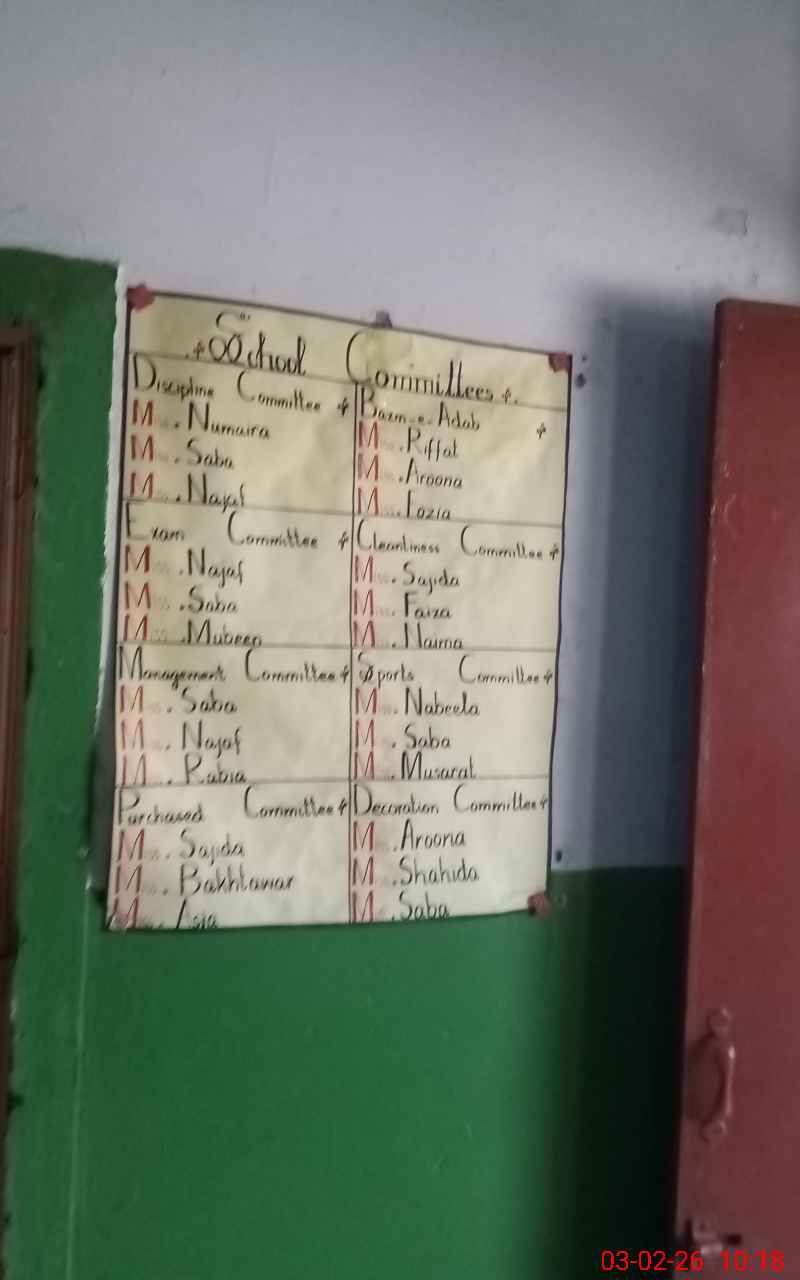 School Committees
Discipline Committee
M....Numaira
M....Saba
M....Najaf
Bazm-e-Adab
M....Riffat
M....Aroona
M....Fozia
Exam Committee
M....Najaf
M....Saba
M....Mubeen
Cleanliness Committee
M....Sajida
M....Faiza
M....Naima
Management Committee
M....Saba
M....Najaf
M....Rabia
Sports Committee
M....Nabeela
M....Saba
M....Musarat
Purchased Committee
M....Sajida
M....Bakhtawar
M....Asia
Decoration Committee
M....Aroona
M....Shahida
M....Saba
03-02-26 10:18